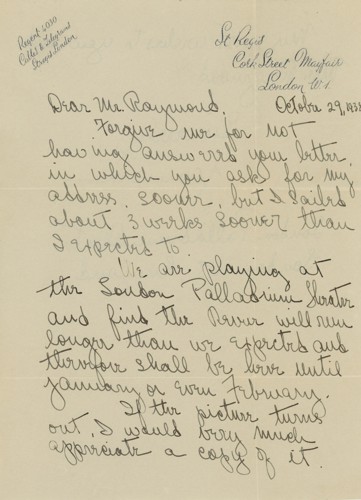 Regent 6030
Cables & Telegrams
Stregis London
St Regis
Cork Street Mayfair
London W.1.
Dear Mr. Raymond. October 29, 1938
Forgive me for not
having answered your letter,
in which you ask for my
address, sooner, but I sailed
about 3 weeks sooner than
I expected to.
We are playing at
the London Palladium Theater
and find the Revue will run
longer than we expected and
therefore shall be here until
January or even February.
If the picture turns
out, I would very much
appreciate a copy of it.